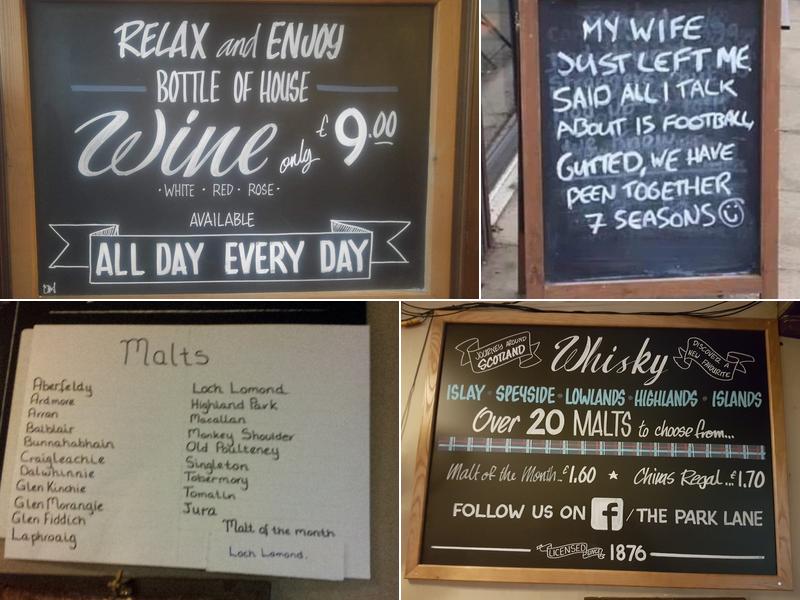 RELAX and ENJOY
BOTTLE OF HOUSE
Wine only £9.00
· WHITE · RED · ROSE ·
AVAILABLE
ALL DAY EVERY DAY
MY WIFE
JUST LEFT ME
SAID ALL I TALK
ABOUT IS FOOTBALL,
GUTTED, WE HAVE
BEEN TOGETHER
7 SEASONS
Malts
Aberfeldy
Ardmore
Arran
Balblair
Bunnahabhain
Craigleachie
Dalwhinnie
Glen Kinchie
Glen Morangie
Glen Fiddich
Laphroaig
Loch Lomond
Highland Park
Macallan
Monkey Shoulder
Old Poulteney
Singleton
Tobermory
Tomatin
Jura
Malt of the month
Loch Lomond.
JOURNEY AROUND
SCOTLAND
Whisky
DISCOVER A
NEW FAVOURITE
ISLAY · SPEYSIDE · LOWLANDS · HIGHLANDS · ISLANDS
Over 20 MALTS to choose from...
Malt of the Month..£1.60 ★ Chivas Regal...£1.70
FOLLOW US ON f/THE PARK LANE
LICENSED SINCE 1876